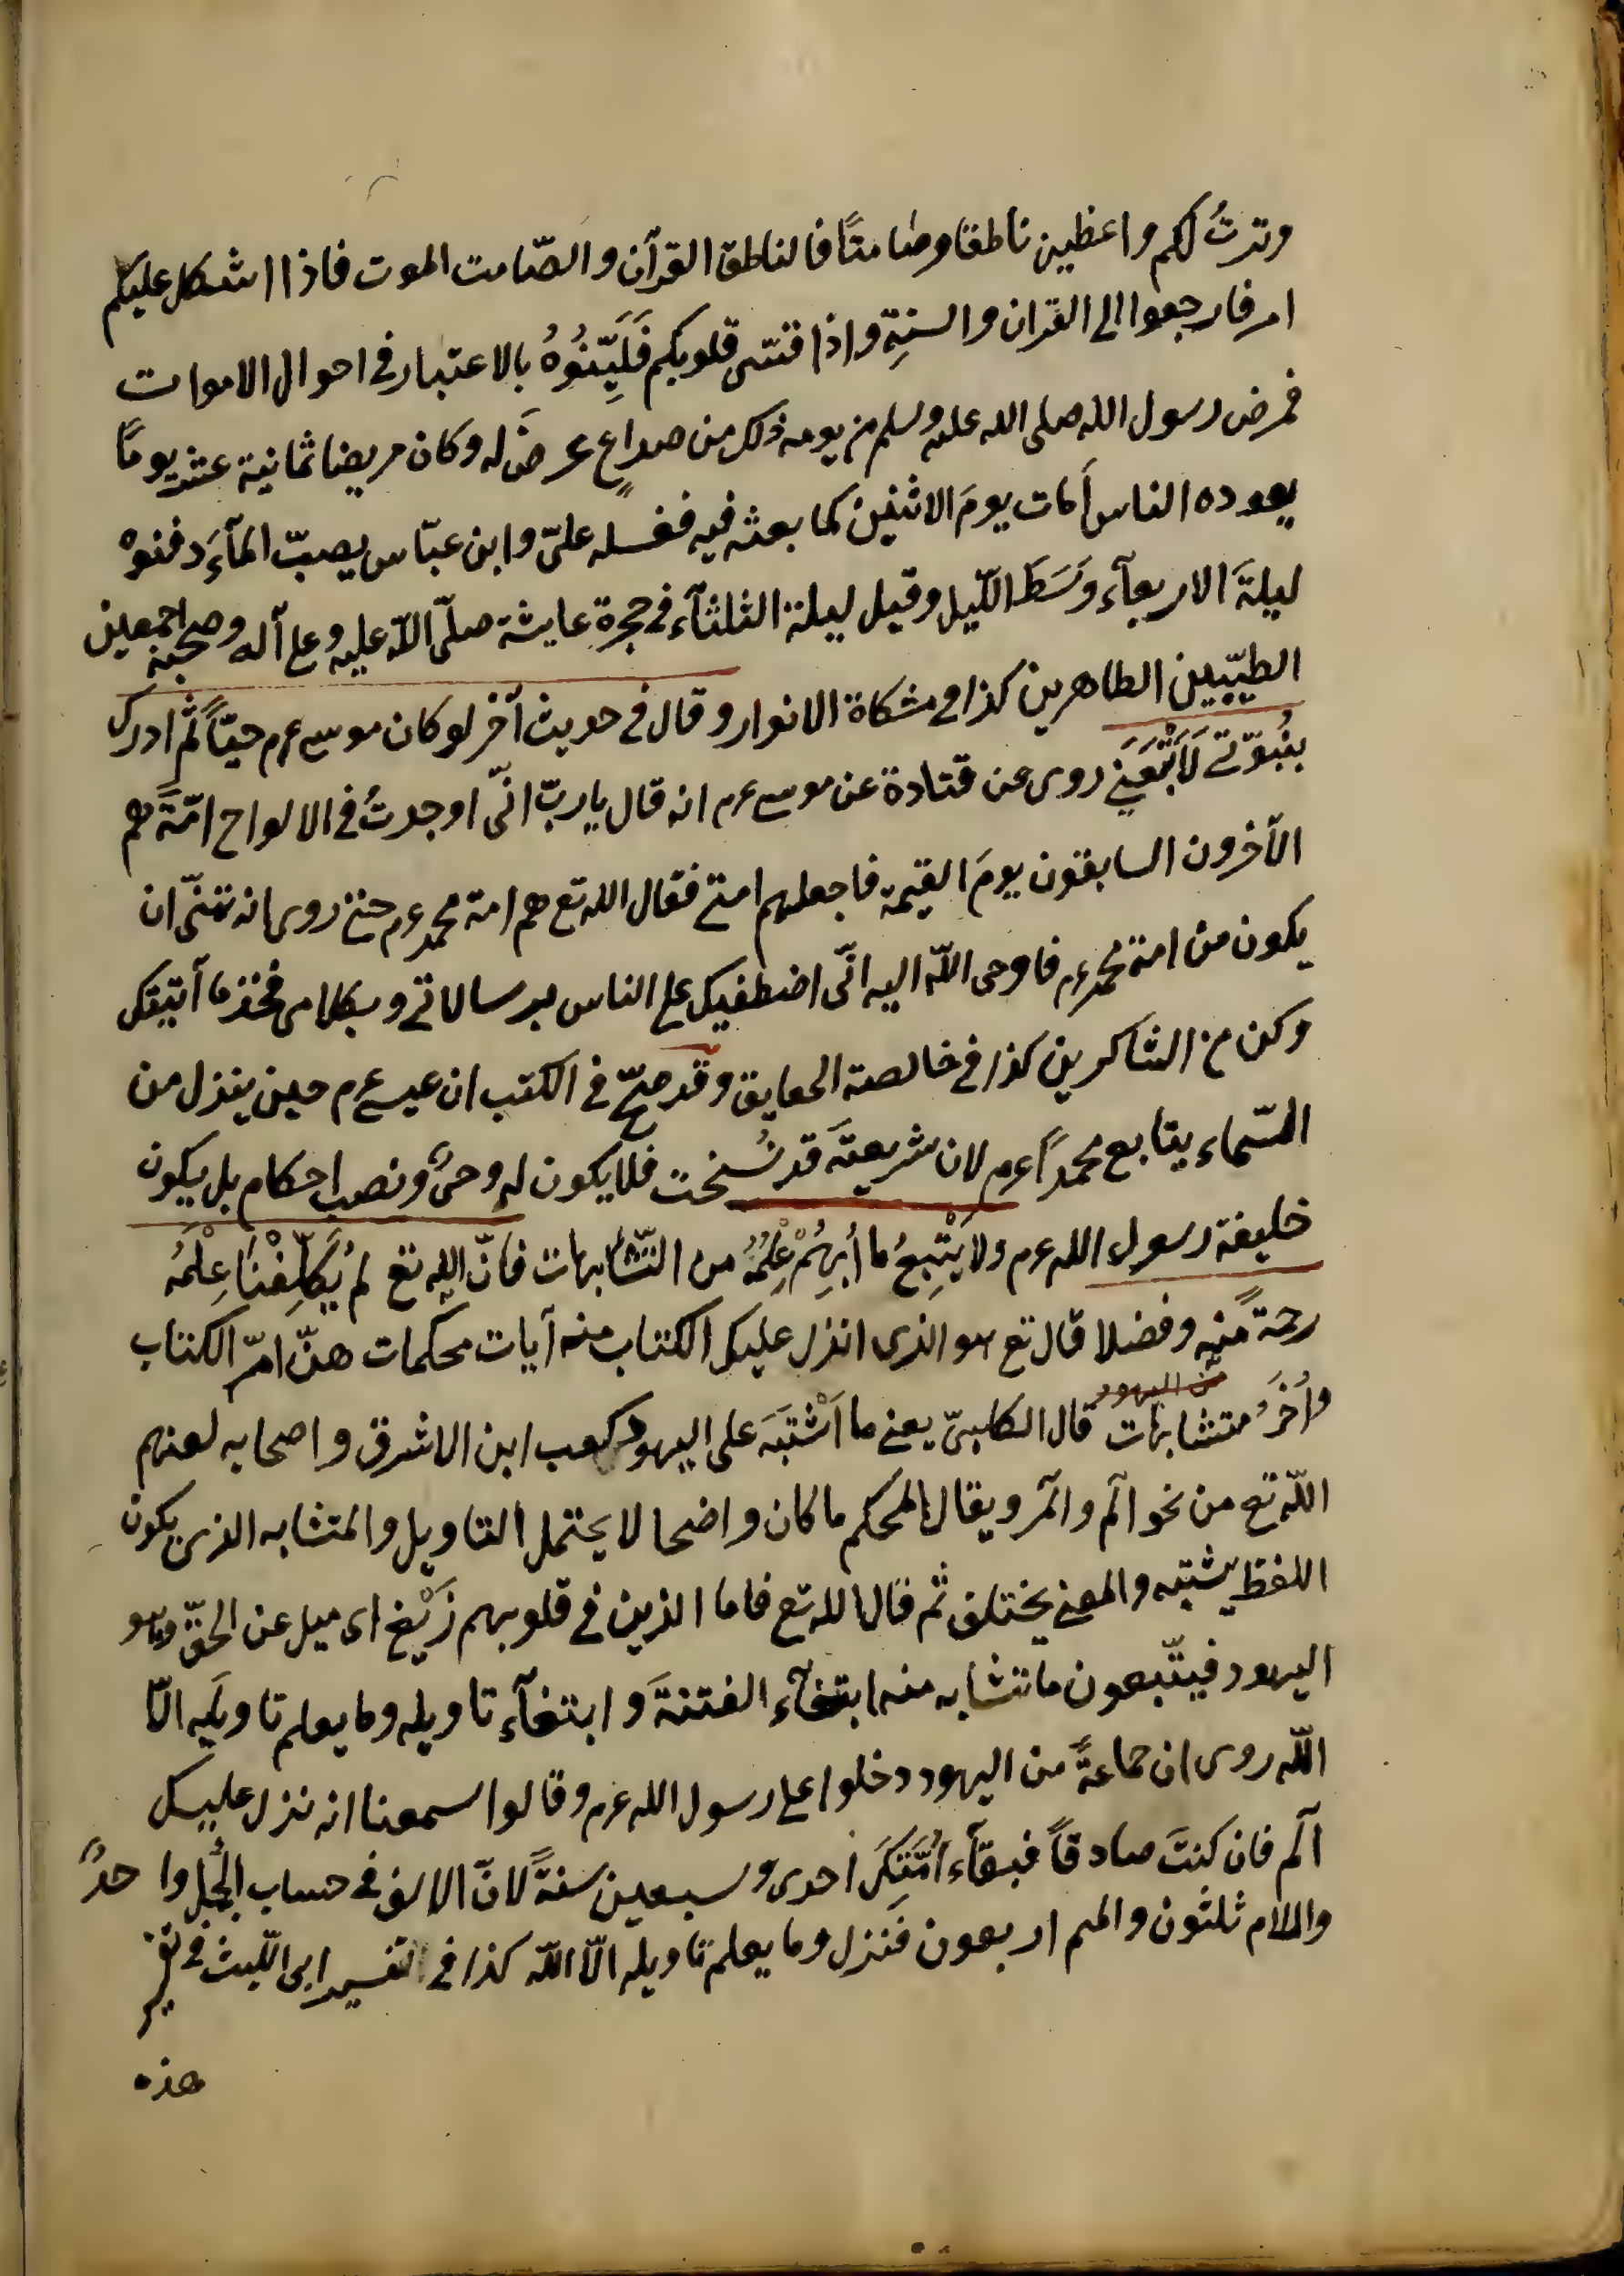 وتركتُ لكم واعظين ناطقا وصامتًا فالناطق القرآن والصّامت الموت فاذا اشكل عليكم
امر فارجعوا الى القران والسنةِ واذا قستى قلوبكم فَلَيِّنُوهُ بالاعتبار فى احوال الاموات
فمرض رسول الله صلى الله عليه وسلم من يومه ذلك من صداعٍ عرضَ له وكان مريضا ثمانية عشر يومًا
يعوده الناس مات يومَ الاثنين كما بعثه فيه فغسله علىّ وابن عبّاس يصبّ المآءَ دفنوهُ
ليلةَ الاربعآء وَسَطَ اللّيل وقيل ليلة الثلثآء فى حجرة عايشة صلّى اللّه عليه وعلى آله وصحبه اجمعين
الطيّبين الطاهرين كذا فى مشكاة الانوار وقال فى حديث آخر لو كان موسى عم حيّاً ثمّ ادرك
بنُبوّتى لَاَتْبَعَنِى روى عن قتادة عن موسى عم انه قال يا ربّ انّى اوجدتُ فى الالواح امّةً هم
الآخرون السابقون يومَ القيمة فاجعلهم امتى فقال الله تع هم امة محمد عم حتى روى انه تمنّى ان
يكون من امة محمد عم فاوحى اللّه اليه انّى اضطفيتك على الناس برسالاتى وبكلامى فخذ ما آتيتك
وكن من الشاكرين كذا فى خالصة الحقايق وقد صحّ فى الكتب ان عيسى عم حين ينزل من
السّماء يتابع محمداً عم لان شريعتَه قد نُسخت فلا يكون له وحىٌ ونصب احكام بل يكون
خليفة رسول الله عم ولا يَتَّبِعُ ما اُبْهِمَ عِلْمُهُ من المتشابهات فانّ الله تع لم يُكَلِّفْنَا عِلْمَهُ
رحمةً منه وفضلا قال تع هو الذى انزل عليك الكتاب منه آيات محكمات هنّ امّ الكتاب
وأُخَرُ متشابهات من اليهود قال الكلبىّ يعنى ما اَشْتَبَهَ على اليهود كعب ابن الاشرف واصحابه لعنهم
اللّه تع من نحو الٓم والٓمر ويقال المحكم ما كان واضحا لا يحتمل التاويل والمتشابه الذى يكون
اللفظ يشتبه والمعنى يختلف ثم قال الله تع فاما الذين فى قلوبهم زَيْغ اى ميل عن الحقّ وهو
اليهود فيتّبعون ما تشابه منه ابتغآء الفتنةَ وابتغآء تاويله وما يعلم تاويلَه الّا
اللّه روى ان جماعةً من اليهود دخلوا على رسول الله عم وقالوا سمعنا انه نزل عليك
الٓم فان كنتَ صادقاً فبقآء اُمَّتِكَ احدى وسبعين سنةً لانّ الالف فى حساب الجُمل واحدٌ
واللام ثلثون والميم اربعون فَنزل وما يعلم تاويله الّا اللّه كذا فى تفسير ابى اللّيث فى تفسير
هذه